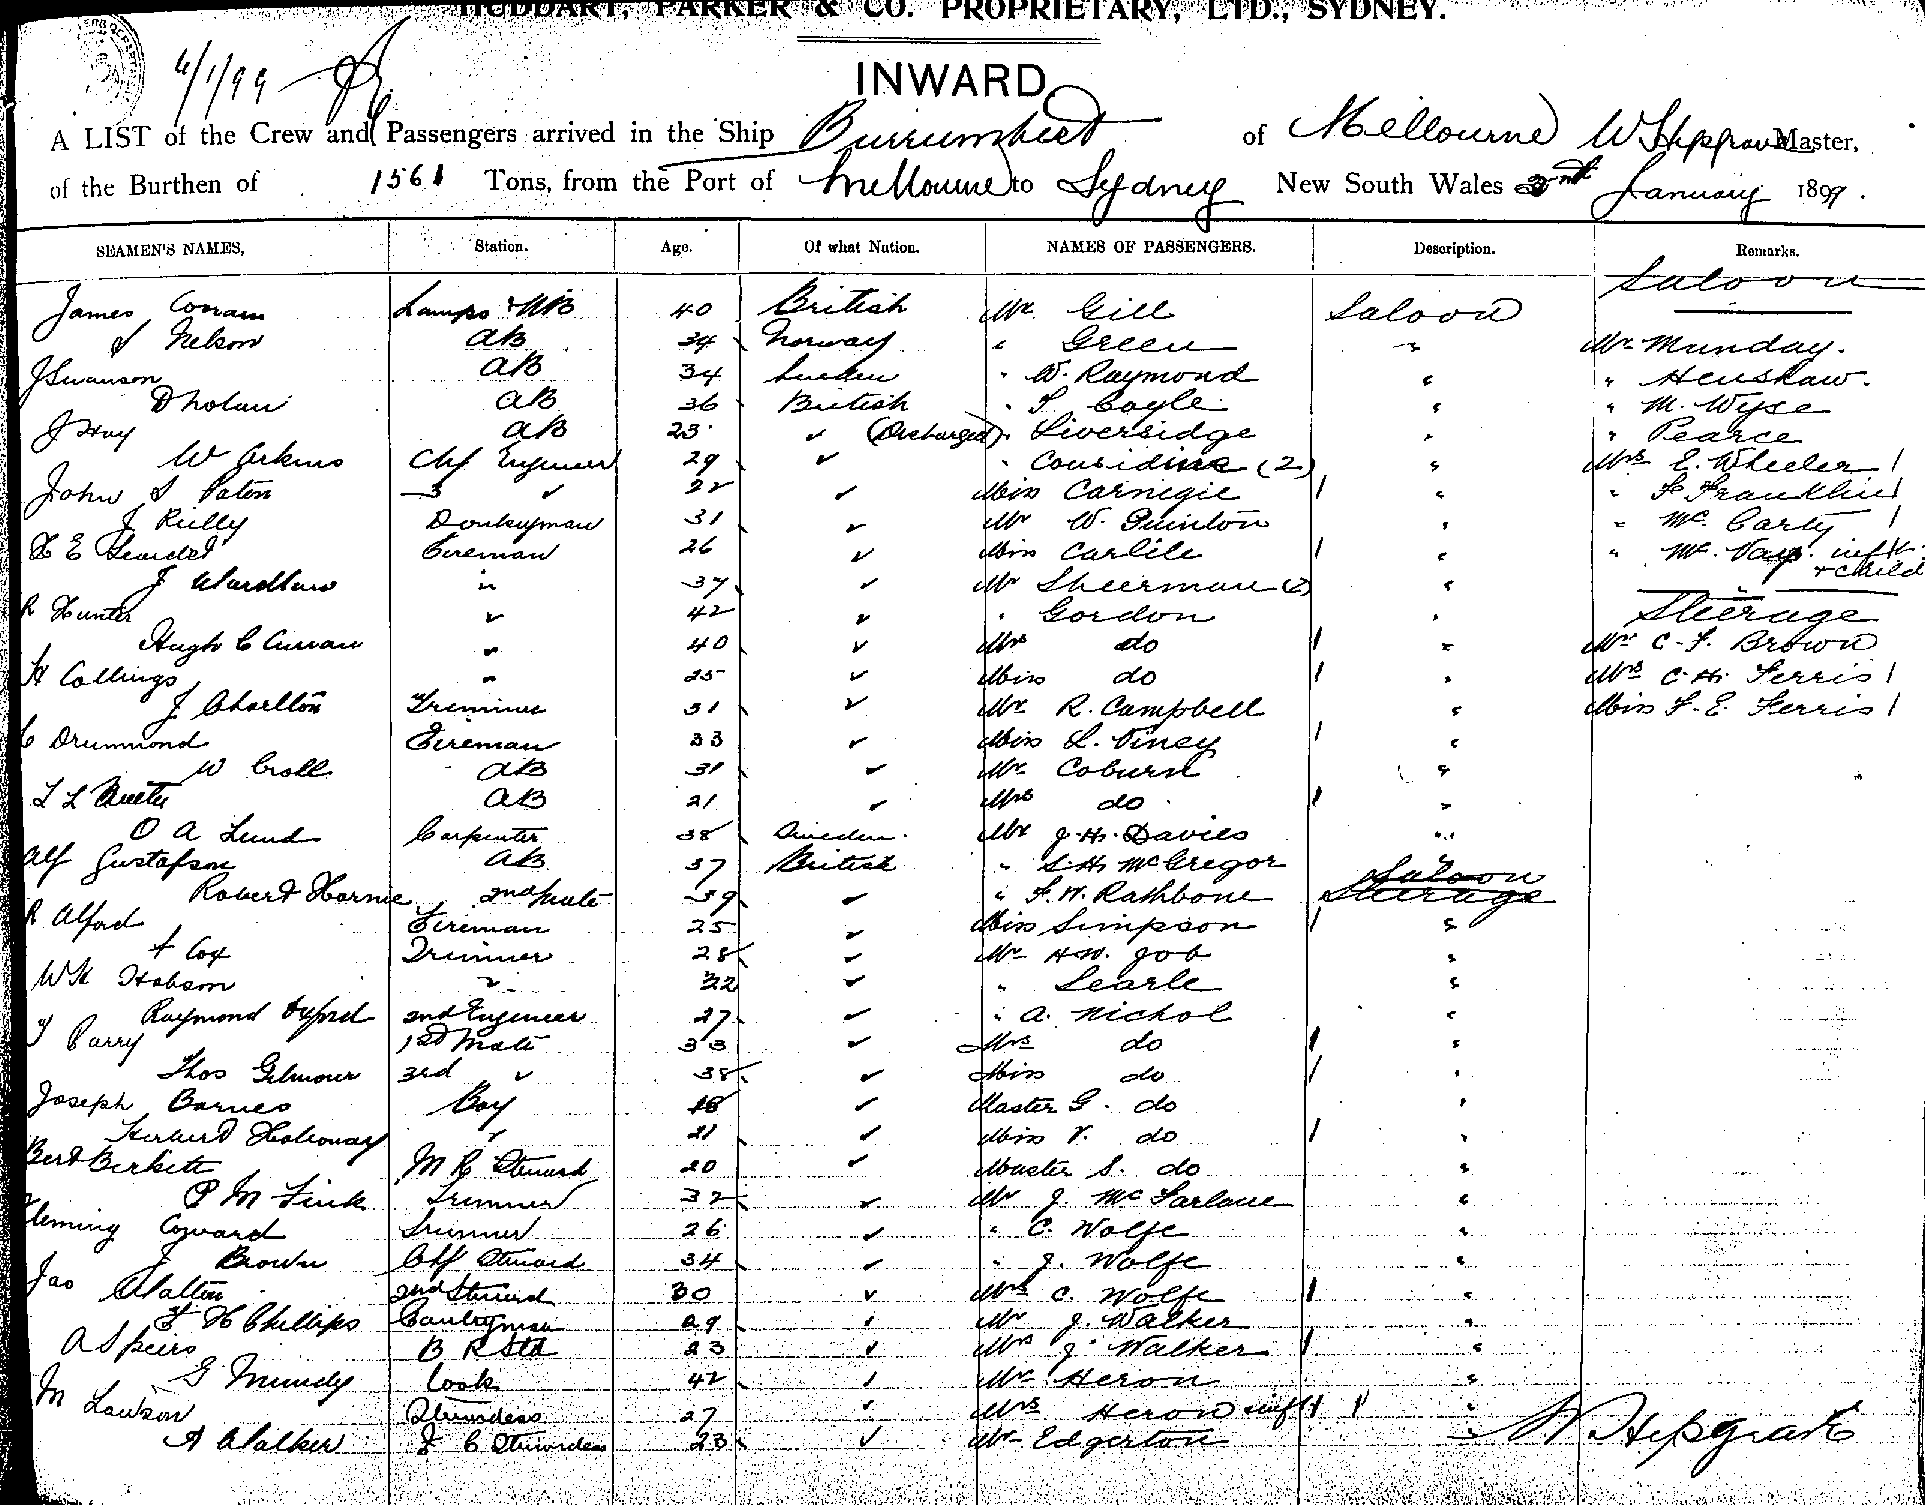 HUDDART, PARKER & CO. PROPRIETARY, LTD., SYDNEY.
4/1/99
INWARD
A LIST of the Crew and Passengers arrived in the Ship Burrumbeet of Melbourne W Hipgrave Master,
of the Burthen of 1561 Tons, from the Port of Melbourne to Sydney New South Wales January 1899.
SEAMEN'S NAMES, Station. Age. Of what Nation. NAMES OF PASSENGERS. Description. Remarks.
Saloon
James Lamps 40 British Mr Gill Saloon
Nelson AB 34 Norway " Green " Mr Munday.
J Swanson AB 34 Sweden " W. Raymond " " Henshaw.
D Nolan AB 36 British " Coyle " " M. Wyse
J Hay AB 23 ✓ (Discharged) " Liversidge " " Pearce
W Arkins Chf Engineer 29 ✓ " Considine (2) " Mrs E. Wheeler 1
John S Paton 3 ✓ 22 ✓ Miss Carnegie 1 " " F Franklin 1
J Rielly Donkeyman 31 ✓ Mr W. Quinton " " Mc Carty 1
Fireman 26 ✓ Miss Carlile 1 " " inft
J Wardlaw " 37 ✓ Mr Sheerman (2) " + child
R Hunter " 42 ✓ " Gordon " Steerage
Hugh C Curran " 40 ✓ Mrs do 1 " Mr C. F. Brown
H Collings " 25 ✓ Miss do 1 " Mrs C. H. Ferris 1
J Charlton Trimmer 31 ✓ Mr R. Campbell " Miss F. E. Ferris 1
C Drummond Fireman 33 ✓ Miss L. Viney 1 "
W Croll AB 31 ✓ Mr Coburn "
AB 21 ✓ Mrs do 1 "
O A Lund Carpenter 38 Sweden Mr J. H. Davies "
Alf Gustafson AB 37 British " S. H. McGregor "
Robert Harnie 2nd Mate 39 ✓ " F. W. Rathbone Saloon Steerage
R Alford Fireman 25 ✓ Miss Simpson 1 "
Cox Trimmer 28 ✓ Mr H W. Job "
W H Hobson " 22 ✓ " Searle "
Raymond 2nd Engineer 27 ✓ " A. Nichol "
Parry 1st Mate 33 ✓ Mrs do 1 "
Thos Gilmour 3rd ✓ 38 ✓ Miss do 1 "
Joseph Barnes Boy 18 ✓ Master G. do "
Herbert Holloway ✓ 21 ✓ Miss V. do 1 "
Bert Birkett M R Steward 20 ✓ Master S. do "
P M Fink Trimmer 32 ✓ Mr J. McFarlane "
Fleming Coward Trimmer 26 ✓ " C. Wolfe "
J Brown Chf Steward 34 ✓ " J. Wolfe "
Jas Walton 2nd Steward 30 ✓ Mrs C. Wolfe 1 "
F H Phillips Pantryman 29 Mr J. Walker "
A Speirs B R Std 23 ✓ Mrs J. Walker 1 "
G Mundy Cook 42 Mr Heron "
M Lawson Stewardess 27 Mrs Heron inft 1 "
A Walker F C Stewardess 23 ✓ Mr Edgerton "
W Hipgrave